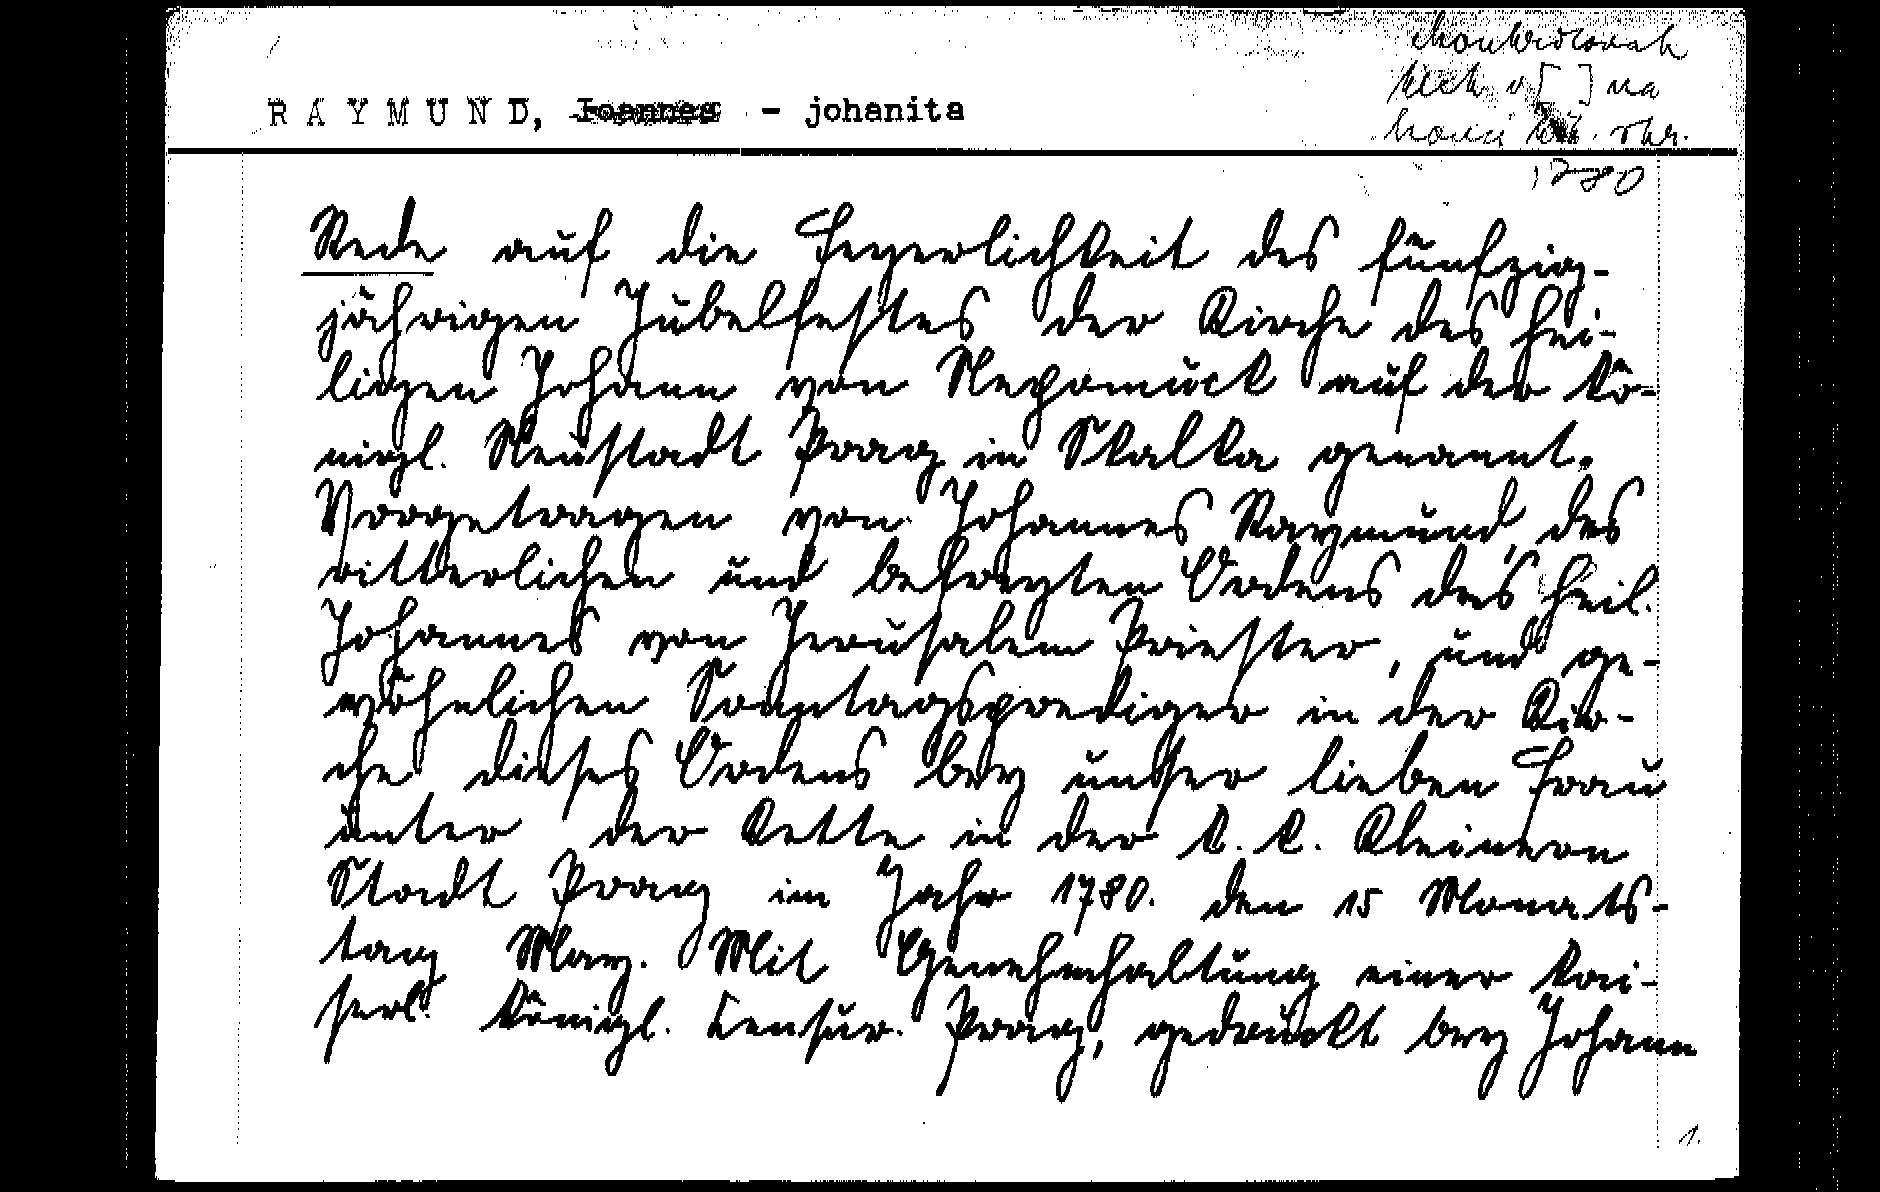 RAYMUND, Joannes - johanita
na
1780
Rede auf die Feyerlichkeit des fünfzig-
jährigen Jubelfestes der Kirche des hei-
ligen Johann von Nepomuck auf der kö-
nigl. Neustadt Prag in Skalka genannt.
Vorgetragen von Johannes Raymund, des
ritterlichen und befreyten Ordens des heil.
Johannes von Jerusalem Priester, und ge-
wöhnlichen Sonntagsprediger in der Kir-
che dieses Ordens bey unser lieben Frau
unter der Kette in der k. k. Kleinern
Stadt Prag im Jahr 1780. den 15 Monats-
tag May. Mit Genehmhaltung einer kai-
serl. königl. Censur. Prag, gedruckt bey Johann
1.